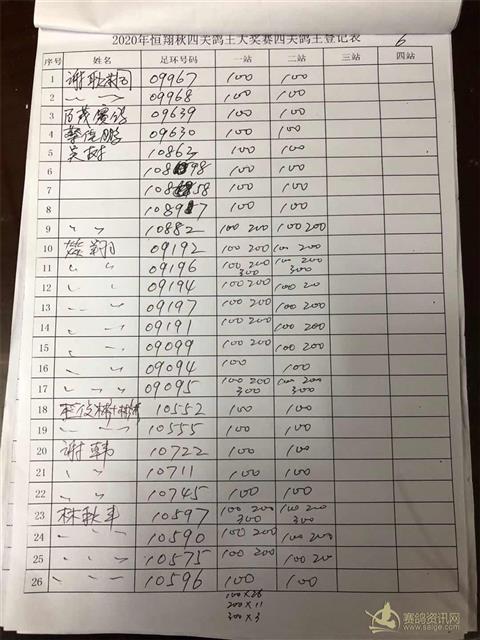 2020年恒翔秋四关鸽王大奖赛四关鸽王登记表 6
序号 姓名 足环号码 一站 二站 三站 四站
1 09967 100 100
2 〃 〃 09968 100 100
3 09639 100 100
4 09630 100 100
5 10863 100 100
6 100 100
7 100 100
8 100 100
9 〃 〃 10882 100 200 100 200
10 09192 100 200 100 200
11 〃 〃 09196 100 200 300 100 200 300
12 〃 〃 09194 100 200 100 20
13 〃 〃 09197 100 200 100 200
14 〃 〃 09191 100 200 100 200
15 〃 〃 09099 100 200 100 200
16 〃 〃 09094 100 100
17 〃 〃 09095 100 200 300 100 200 300
18 10552 100 100
19 〃 〃 10555 100 100
20 谢韩 10722 100 100
21 〃 〃 10711 100 100
22 〃 〃 10745 100 100
23 10597 100 200 300 100 200 300
24 〃 〃 〃 10590 100 200 100 200
25 〃 〃 〃 10575 100 200 100 20
26 〃 〃 〃 10596 100 100
100×26
200×11
300×3
赛鸽资讯网
www.saige.com